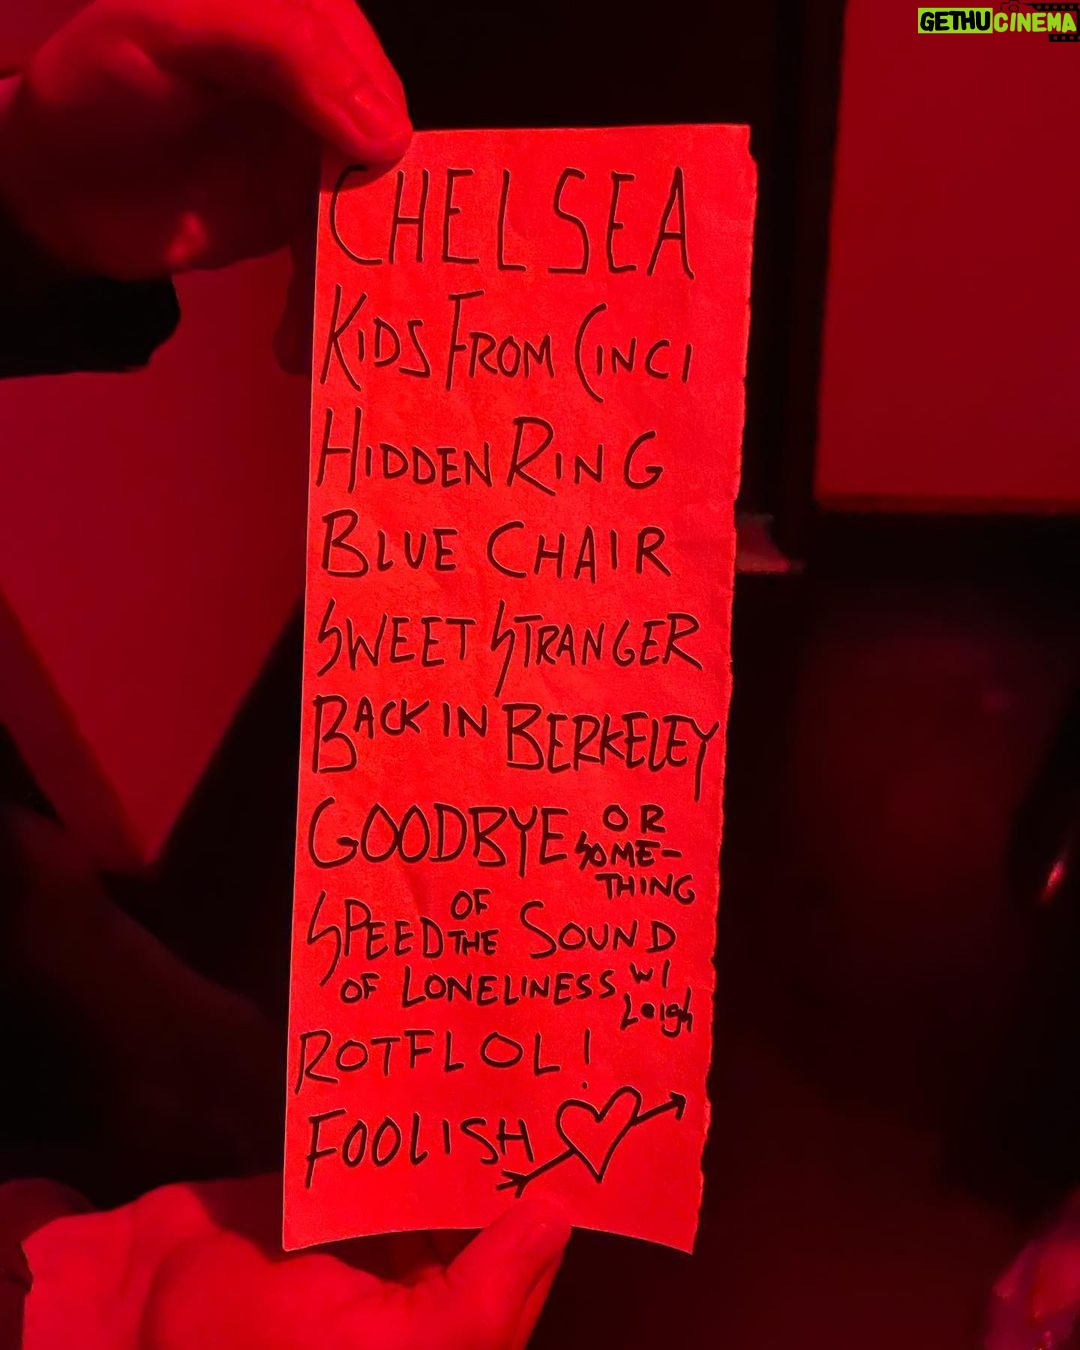 GETHUCINEMA
CHELSEA
KIDS FROM CINCI
HIDDEN RING
BLUE CHAIR
SWEET STRANGER
BACK IN BERKELEY
GOODBYE OR SOME-THING
SPEED OF THE SOUND
OF LONELINESS W/ Leigh
ROTFLOL!
FOOLISH